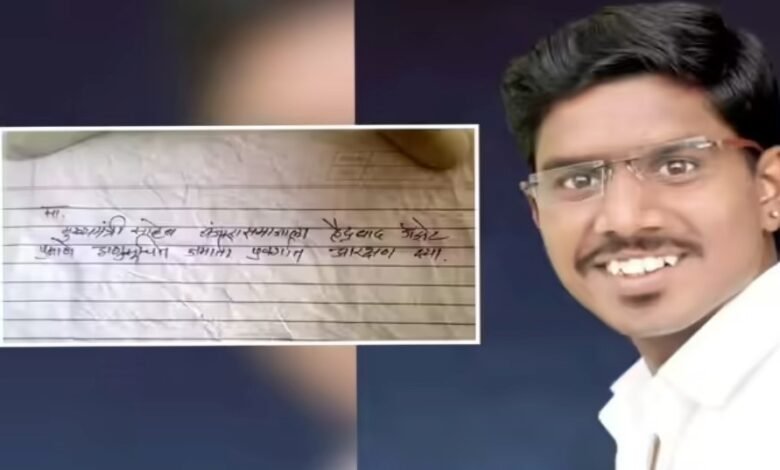 मा.
मुख्यमंत्री साहेब बंजारा समाजाला हैद्रबाद गॅझेट
प्रमाणे अनुसूचित जमाती प्रवर्गात आरक्षण द्या.